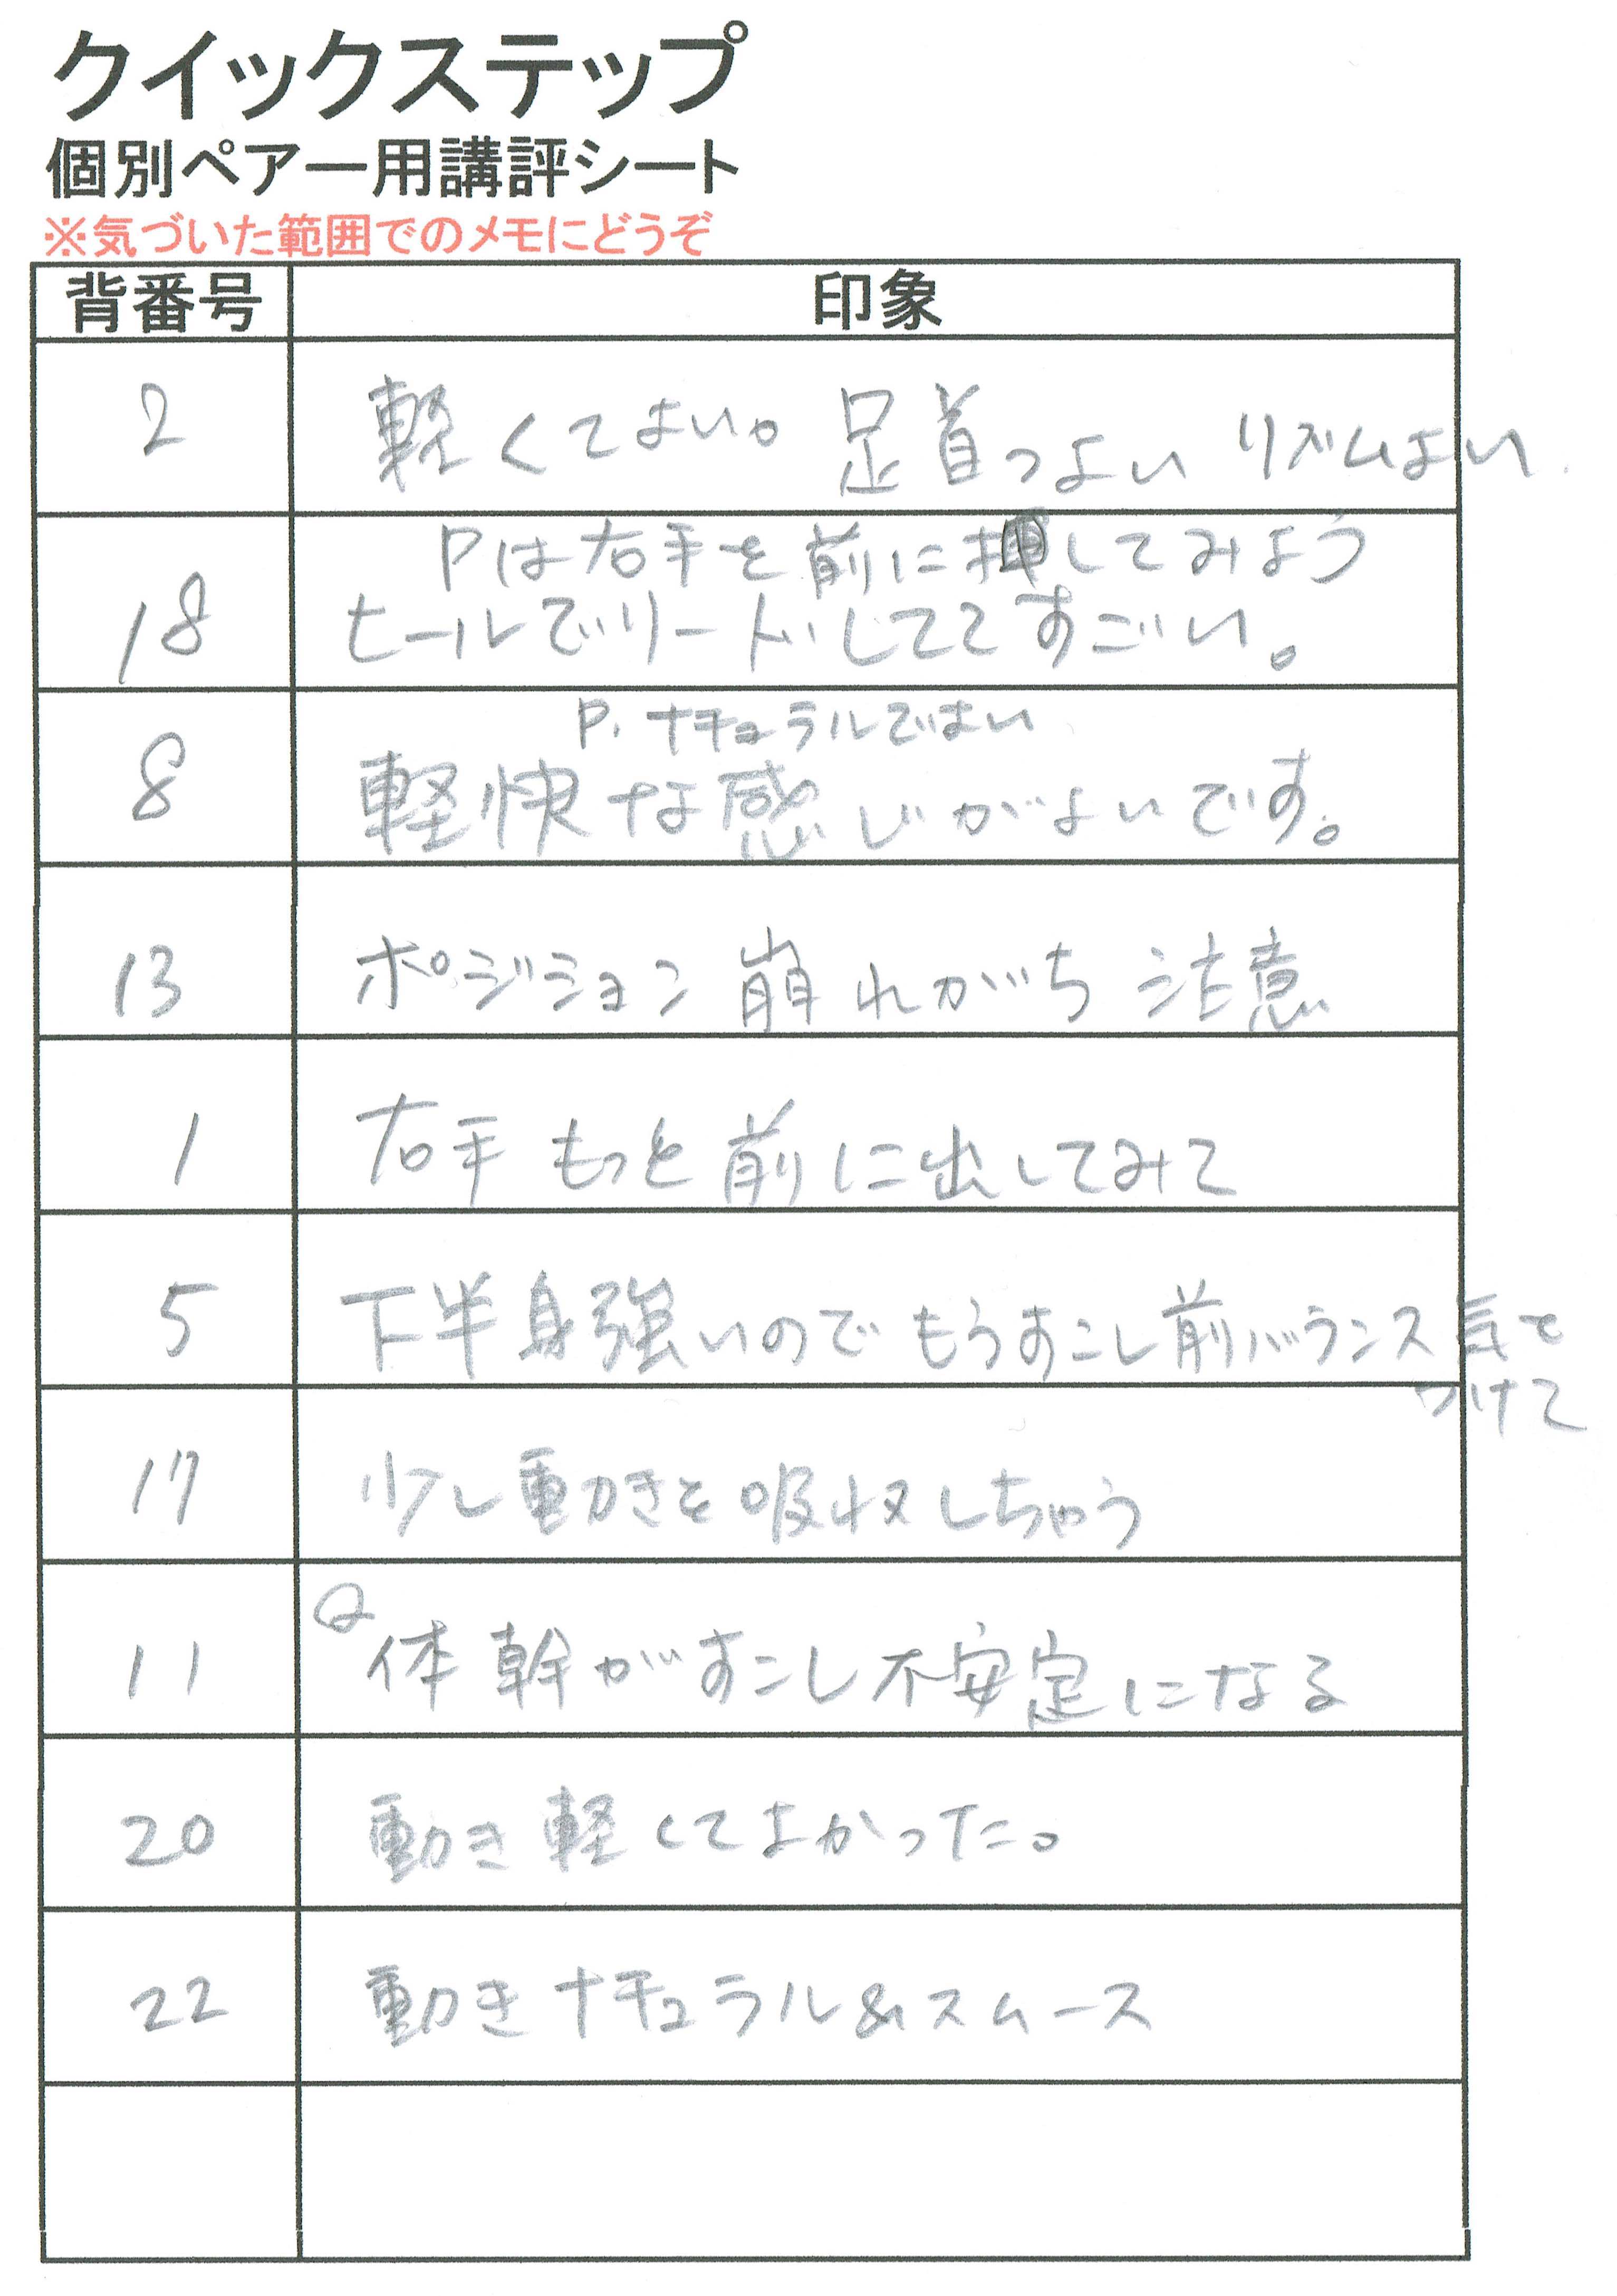 クイックステップ
個別ペアー用講評シート
※気づいた範囲でのメモにどうぞ
背番号 印象
2 軽くてよい。足首つよい リズムよい.
Pは右手を前に押してみよう
18 ヒールでリードしててすごい。
P. ナチュラルでよい
8 軽快な感じがよいです。
13 ポジション崩れがち 注意
1 右手もっと前に出してみて
5 下半身強いのでもうすこし前バランス気を
つけて
17 少し動きを吸収しちゃう
Q
11 体幹がすこし不安定になる
20 動き軽くてよかった。
22 動きナチュラル&スムース